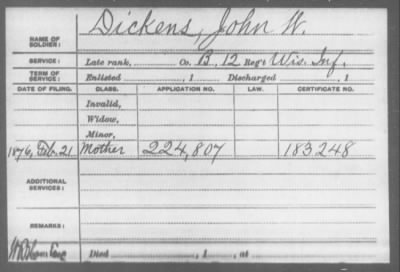 NAME OF SOLDIER: Dickens, John W.
SERVICE: Late rank, Co. B, 12 Reg't Wis. Inf.
TERM OF SERVICE: Enlisted , 1 Discharged , 1
DATE OF FILING. CLASS. APPLICATION NO. LAW. CERTIFICATE NO.
Invalid,
Widow,
Minor,
1876, Feb. 21 Mother 224,807 183248
ADDITIONAL SERVICES:
REMARKS:
Died , 1 , at